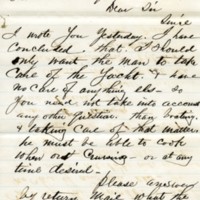 Dear Sir
Since
I wrote you Yesterday. I have
concluded that I should
only want the man to take
care of the Yacht & have
no care of anything else - so
you need not take into account
any other question than boating
& taking care of that matter
he must be able to cook
when out Cruising - or at any
time desired.
Please answer
by return Mail what the